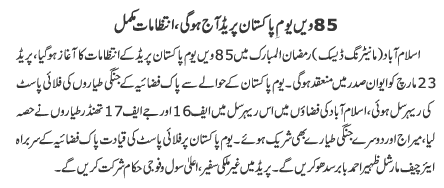 85 ویں یوم پاکستان پریڈ آج ہوگی، انتظامات مکمل
اسلام آباد (مانیٹرنگ ڈیسک) رمضان المبارک میں 85 ویں یوم پاکستان پریڈ کے انتظامات کا آغاز ہوگیا، پریڈ
23 مارچ کو ایوان صدر میں منعقد ہوگی۔ یوم پاکستان کے حوالے سے پاک فضائیہ کے جنگی طیاروں کی فلائی پاسٹ
کی ریہرسل ہوئی، اسلام آباد کی فضاؤں میں اس ریہرسل میں ایف 16 اور جے ایف 17 تھنڈر طیاروں نے حصہ
لیا، میراج اور دوسرے جنگی طیارے بھی شریک ہوئے۔ یوم پاکستان پر فلائی پاسٹ کی قیادت پاک فضائیہ کے سربراہ
ایئر چیف مارشل ظہیر احمد بابر سدھو کریں گے۔ پریڈ میں غیر ملکی سفیر، اعلیٰ سول و فوجی حکام شرکت کریں گے۔